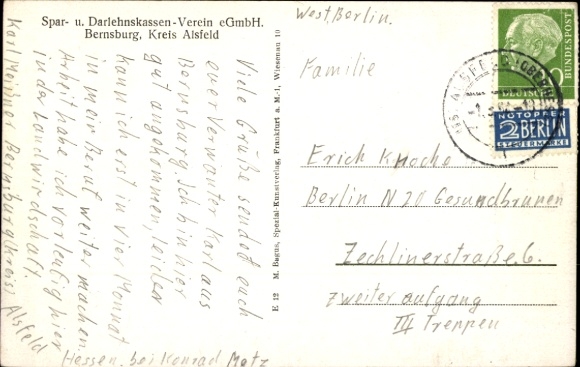 Spar- u. Darlehnskassen-Verein eGmbH.
Bernsburg, Kreis Alsfeld
Viele Grüße sendet euch
euer Verwanter Karl aus
Bernsburg. Ich bin hier
gut angekommen, leider
kann ich erst in vier Monat
in mein Beruf weiter machen.
Arbeit habe ich vorleufig hier
in der Landwirdschaft.
Karl Meißner Bernsburg (Kreis) Alsfeld
Hessen, bei Konrad Motz
E 12 M. Bagus, Spezial-Kunstverlag, Frankfurt a. M.-1, Wiesenau 10
West. Berlin.
Familie
Erich Knoche
Berlin N 20 Gesundbrunnen
Zechlinerstraße. 6.
zweiter aufgang
III Treppen
DEUTSCHE BUNDESPOST
10
ALSFELD (OBERH
NOTOPFER
2 BERLIN
STEUERMARKE